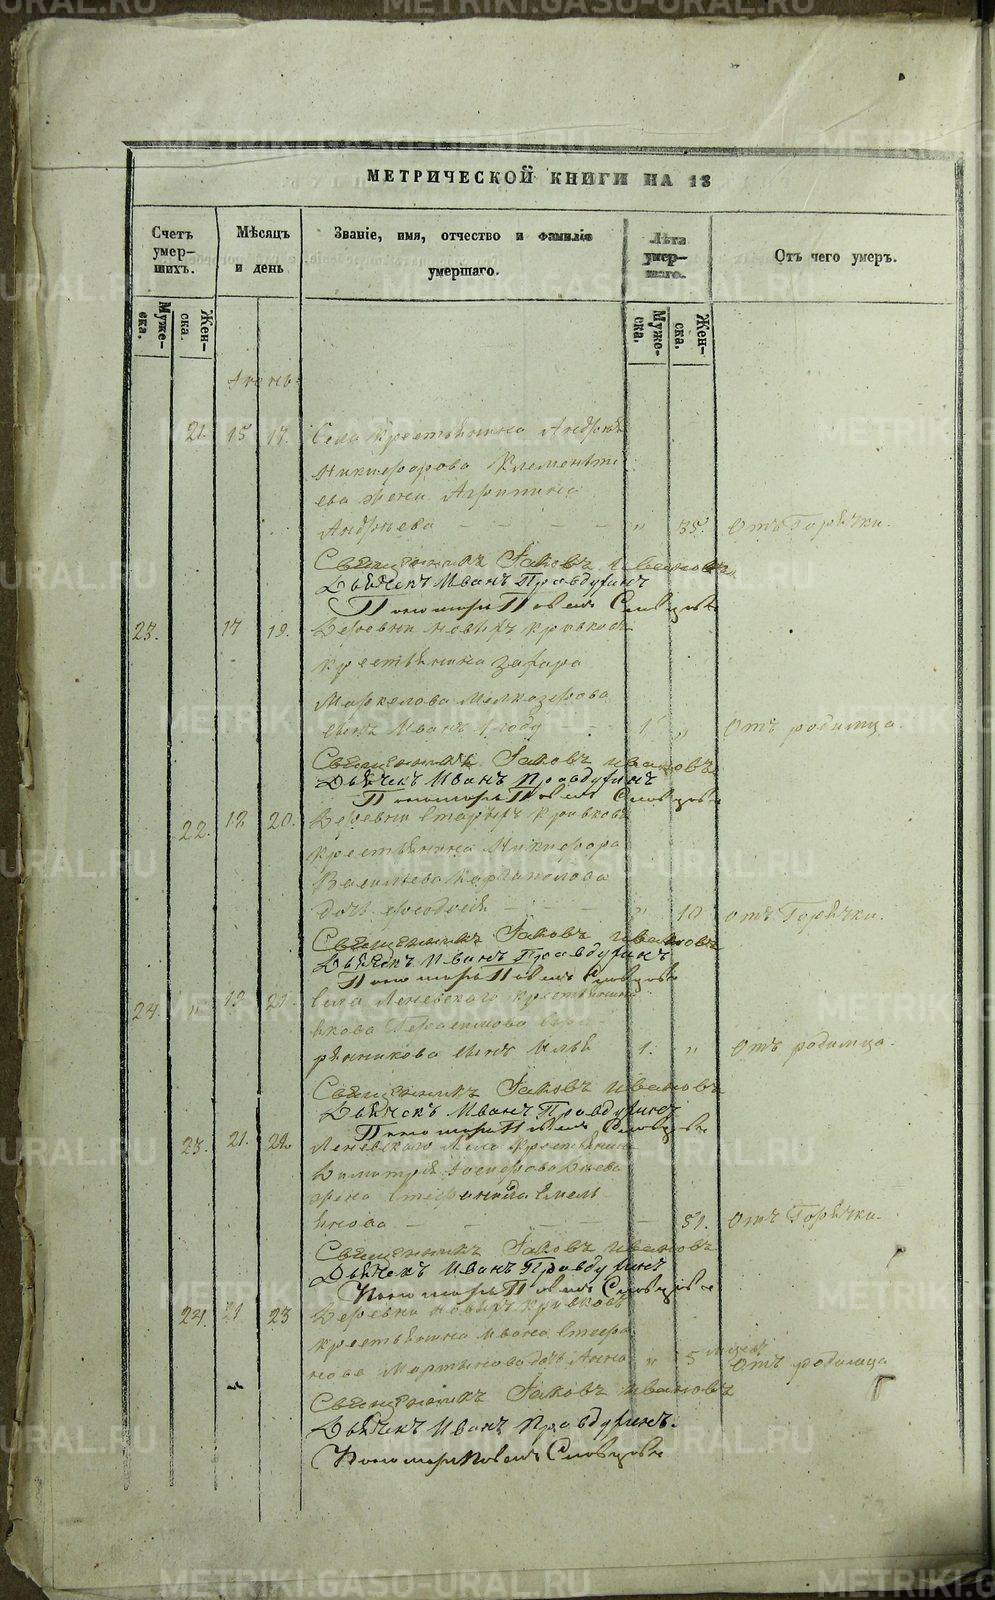 МЕТРИЧЕСКОЙ КНИГИ НА 18
Счетъ умерших. Мѣсяцъ и день Званіе, имя, отчество и фамилія умершаго. Лѣта умершаго. Отъ чего умеръ.
Мужеска. Женска. Мужеска. Женска.
21. 15 17. Села крестьянина Андрея
Никифорова Клементь
ева жена Агрипина
Андреева — — — — „ 35. Отъ Горячки.
Священникъ Iаковъ Ивановъ
Дьячекъ Иванъ Правдухинъ
Пономарь Павелъ Словцовъ
23. 17 19. Деревни Новыхъ Кривковъ
крестьянина Захара
Маркелова Мелкозерова
сынъ Иванъ 1 году — 1 „ Отъ родимца.
Священникъ Iаковъ Ивановъ
Дьячекъ Иванъ Правдухинъ
Пономарь Павелъ Словцовъ
22. 18 20. Деревни Старыхъ Кривковъ
крестьянина Никифора
Васильева Каргаполова
дочь Феодосія — — — „ 10 отъ Горячки.
Священникъ Iаковъ Ивановъ
Дьячекъ Иванъ Правдухинъ
Пономарь Павелъ Словцовъ
24. „ 19 21. Села Леневскаго крестьянина
Якова Герасимова
сынъ Илья 1. „ Отъ родимца.
Священникъ Iаковъ Ивановъ
Дьячекъ Иванъ Правдухинъ
Пономарь Павелъ Словцовъ
23. 21. 22. Леневскаго Села крестьянина
Димитрія
жена Стефанида Емель
янова — — — — — 51. Отъ Горячки.
Священникъ Iаковъ Ивановъ
Дьячекъ Иванъ Правдухинъ
Пономарь Павелъ Словцовъ
24. 21 23 Деревни Новыхъ Кривковъ
крестьянина Ивана Стефа
нова Мартынова дочь Анна „ 5 Отъ родимца
Священникъ Iаковъ Ивановъ
Дьячекъ Иванъ Правдухинъ.
Пономарь Павелъ Словцовъ
METRIKI.GASO-URAL.RU